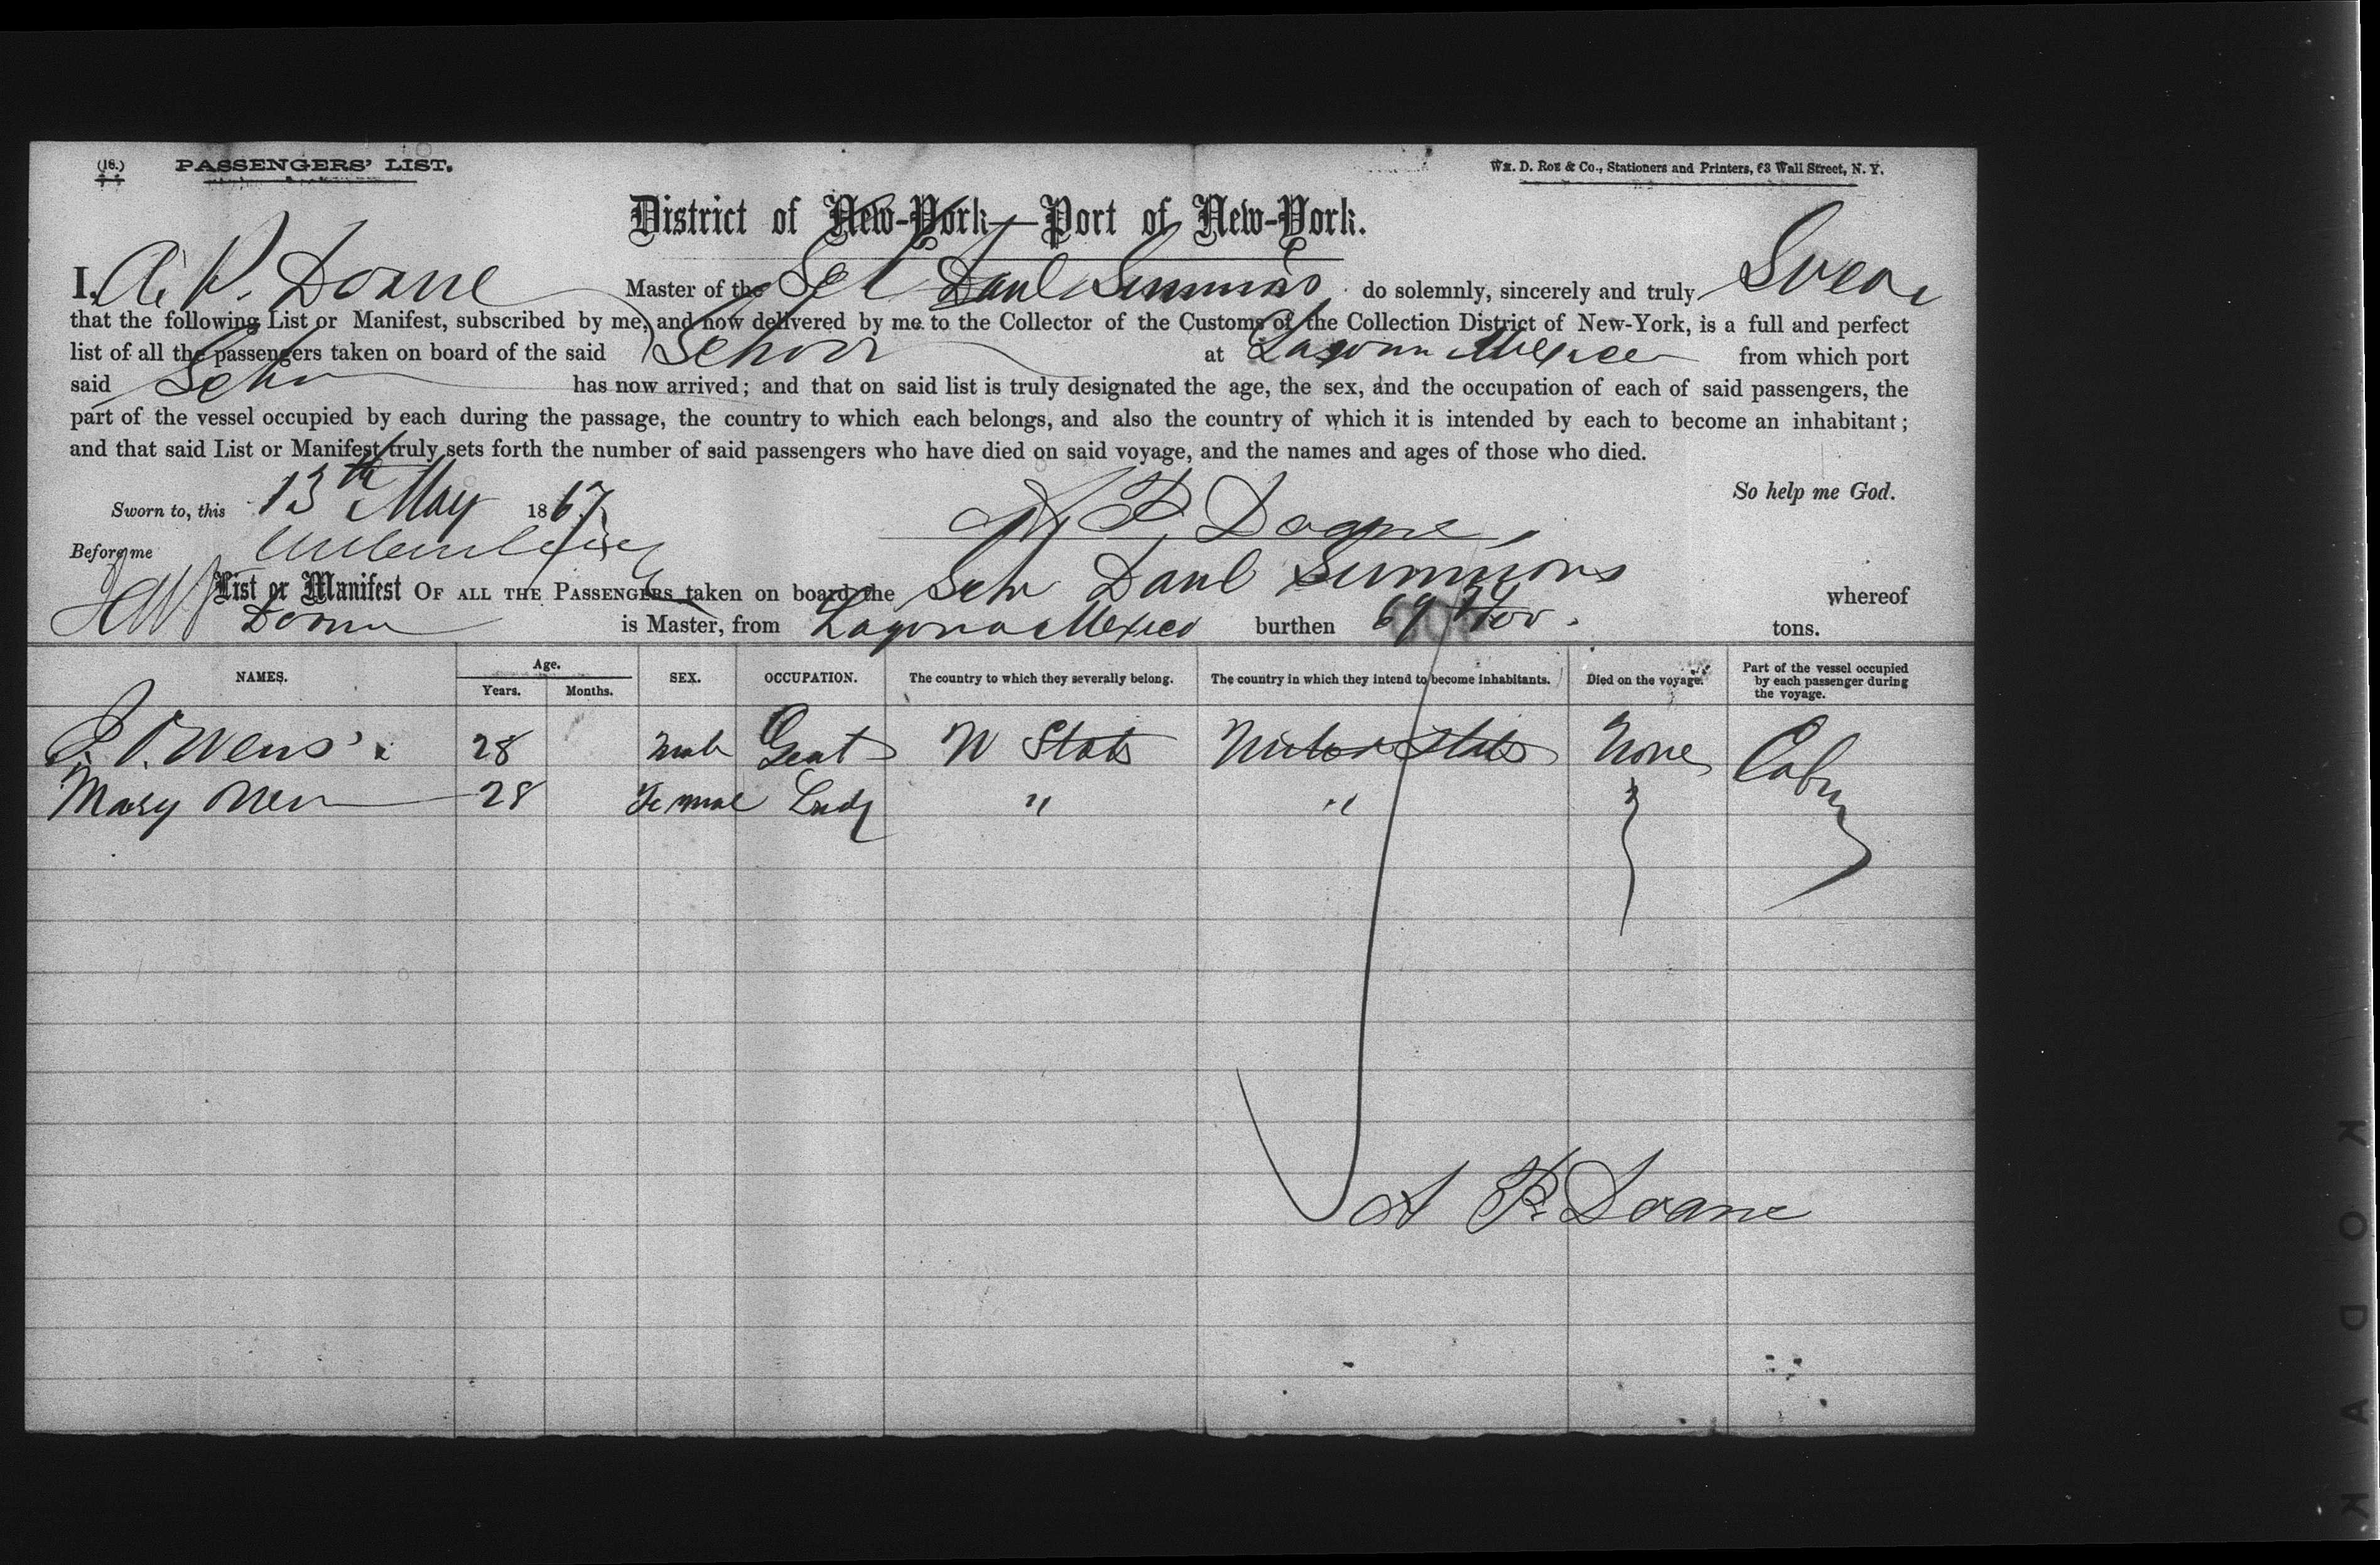 (16.) PASSENGERS' LIST. Wm. D. Roe & Co., Stationers and Printers, 63 Wall Street, N. Y.
District of New-York—Port of New-York.
I, A. P. Doane Master of the Sch Danl Simmons do solemnly, sincerely and truly Swear
that the following List or Manifest, subscribed by me, and now delivered by me to the Collector of the Customs of the Collection District of New-York, is a full and perfect
list of all the passengers taken on board of the said Schoor at Laguna Mexico from which port
said Schr has now arrived; and that on said list is truly designated the age, the sex, and the occupation of each of said passengers, the
part of the vessel occupied by each during the passage, the country to which each belongs, and also the country of which it is intended by each to become an inhabitant;
and that said List or Manifest truly sets forth the number of said passengers who have died on said voyage, and the names and ages of those who died.
So help me God.
Sworn to, this 13th May 1867 A. P. Doane
Before me
List or Manifest OF ALL THE PASSENGERS taken on board the Schr Danl Simmons whereof
Doane is Master, from Laguna Mexico burthen 69 tons.
NAMES. Age. Years. Months. SEX. OCCUPATION. The country to which they severally belong. The country in which they intend to become inhabitants. Died on the voyage. Part of the vessel occupied by each passenger during the voyage.
Owens 28 Male Gent U States United States None Cabin
Mary Owen 28 Female Lady " "
A P. Doane
KODAK